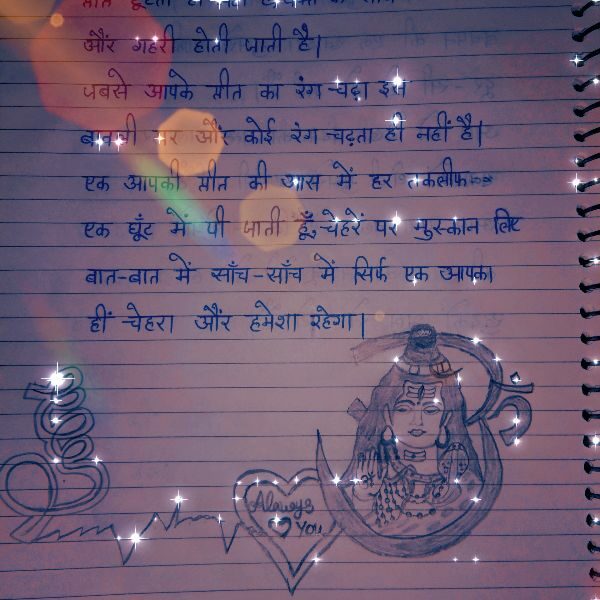 और गहरी होती जाती है।
जबसे आपके प्रीत का रंग चढ़ा इस
बावली पर और कोई रंग चढ़ता ही नहीं है।
एक आपकी प्रीत की आस में हर तकलीफ
एक घूँट में पी जाती हूँ, चेहरें पर मुस्कान लिए
बात-बात में साँच-साँच में सिर्फ एक आपका
हीं चेहरा और हमेशा रहेगा।
ॐ
Always
You